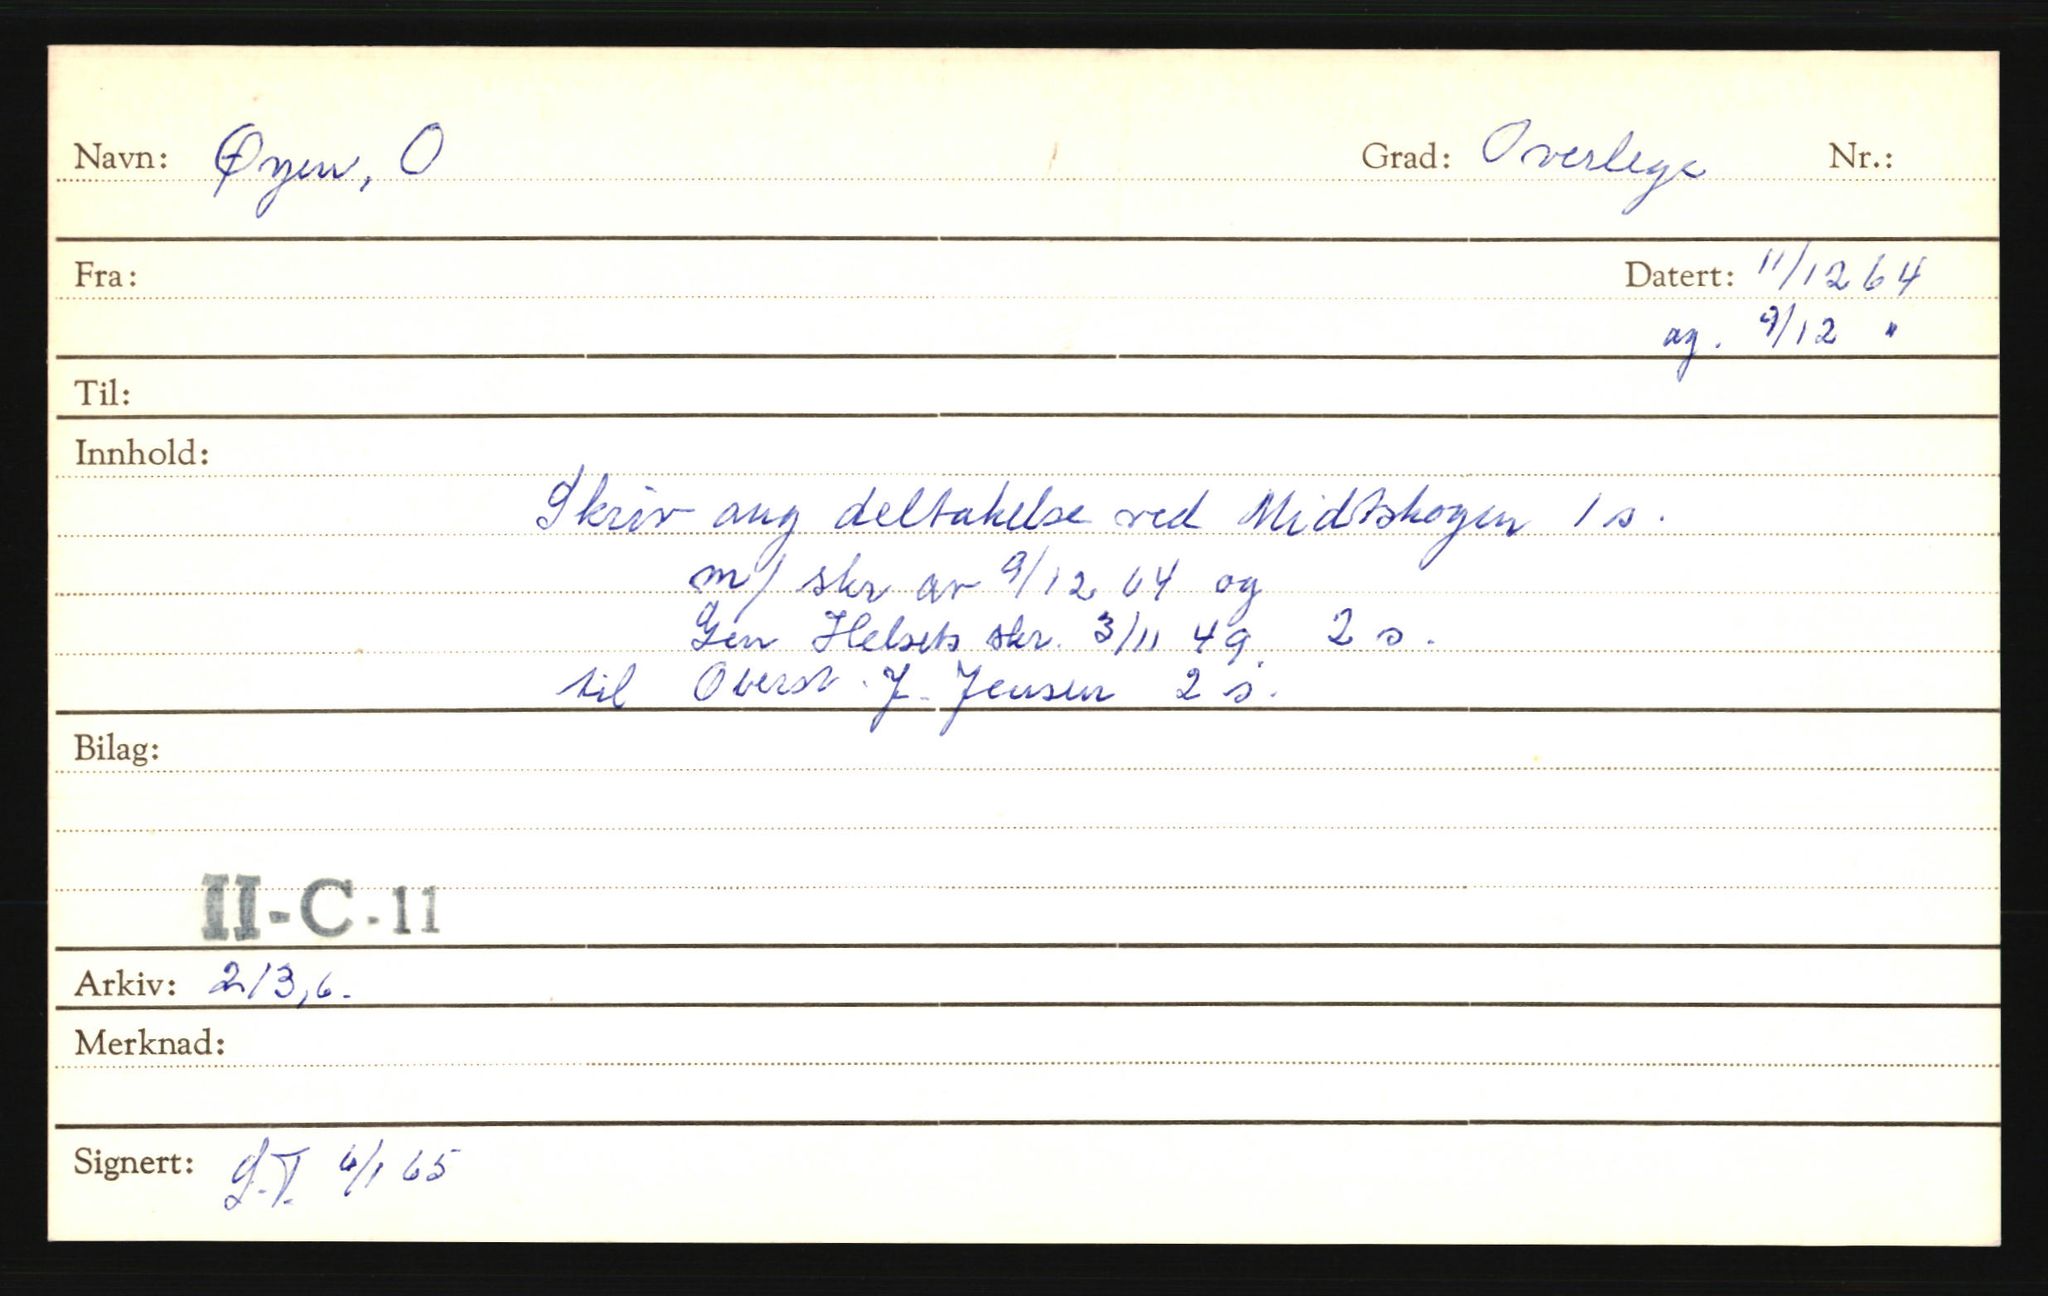 Navn: Øyen, O Grad: Overlege Nr.:
Fra: Datert: 11/12 64
og. 9/12 "
Til:
Innhold:
Skriv ang deltakelse ved Midtskogen 1 s.
m/ skr av 9/12 64 og
Gen Helsets skr. 3/11 49. 2 s.
til Oberst J. Jensen 2 s.
Bilag:
II-C-11
Arkiv: 2/3,6.
Merknad:
Signert: S.T. 6/1 65